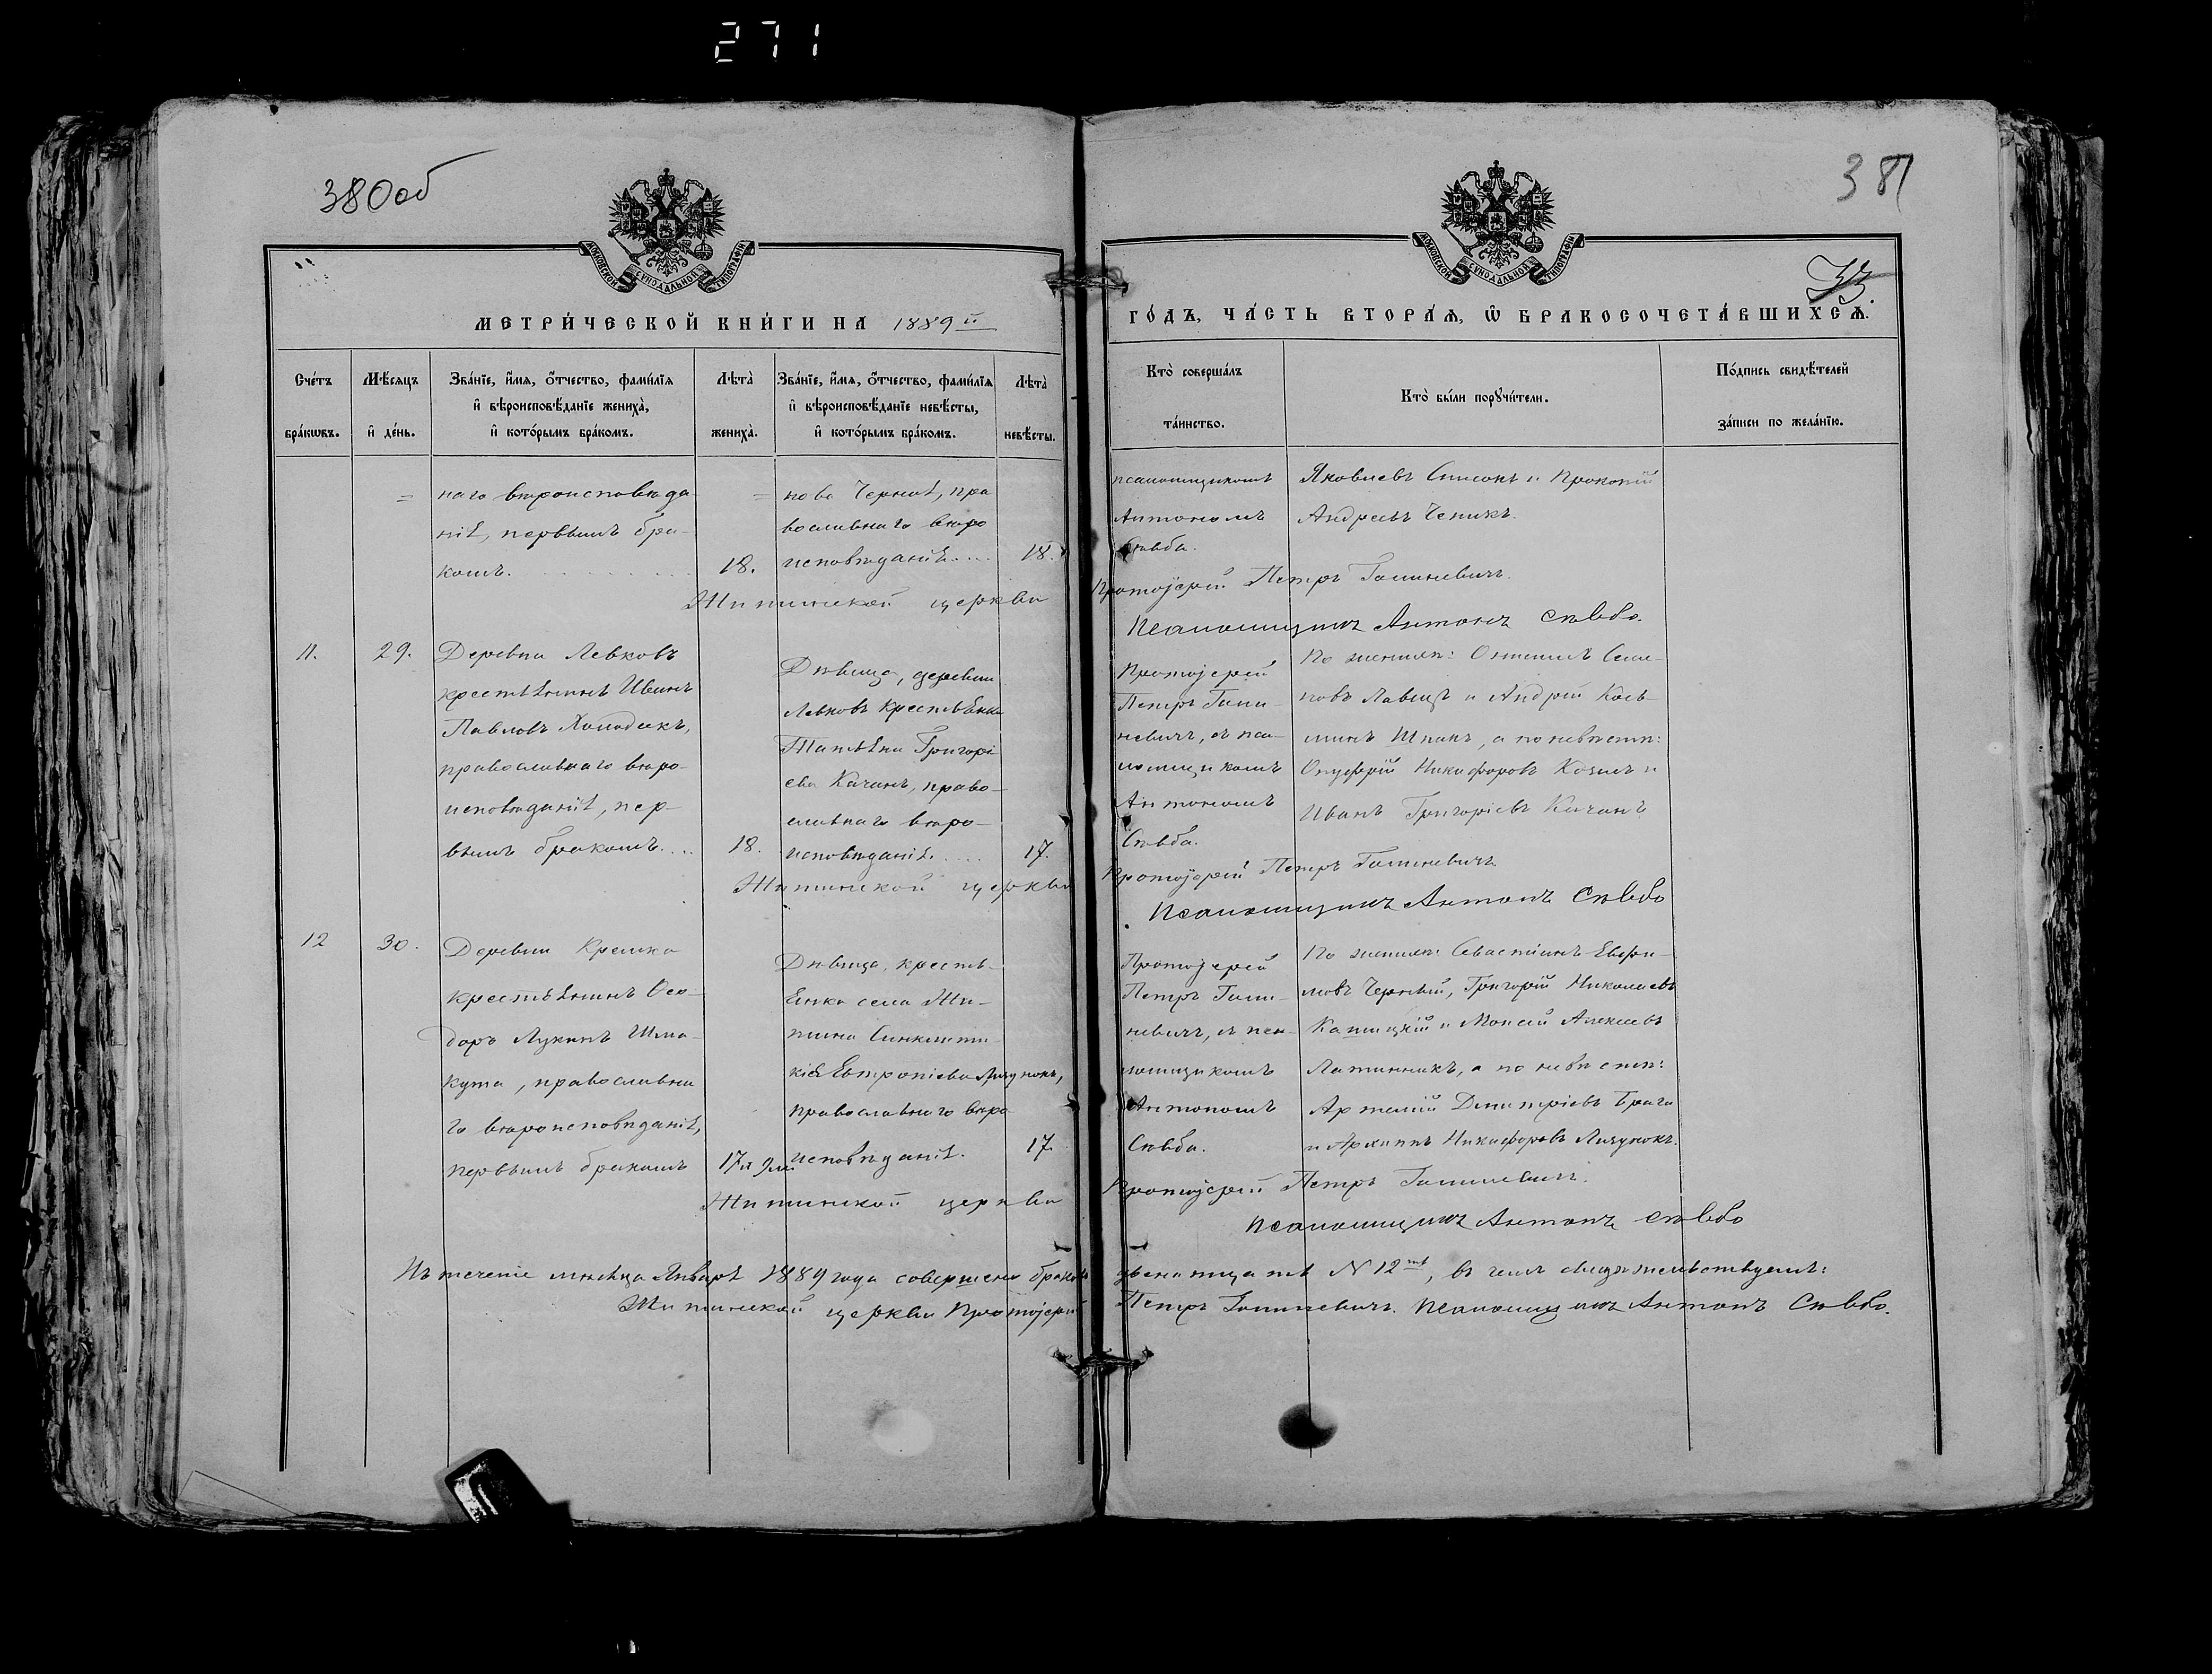 271
380об
381
33.
МОСКОВСКОЙ СУНОДАЛЬНОЙ ТИПОГРАФІИ
МОСКОВСКОЙ СУНОДАЛЬНОЙ ТИПОГРАФІИ
МЕТРИ́ЧЕСКОЙ КНИ́ГИ НА 1889й
ГО́ДЪ, ЧА́СТЬ ВТОРА́Ѧ, Ѡ҆ БРАКОСОЧЕТА́ВШИХСѦ.
Сче́тъ
бра́кѡвъ.
Мѣ́сяцъ
и҆ де́нь.
Зва́нїе, и҆́мѧ, ѻ҆́тчество, фами́лїѧ
и҆ вѣроисповѣ́данїе жениха̀,
и҆ кото́рымъ бра́комъ.
Лѣ́та̀
жениха̀.
Зва́нїе, и҆́мѧ, ѻ҆́тчество, фами́лїѧ
и҆ вѣроисповѣ́данїе невѣ́сты,
и҆ кото́рымъ бра́комъ.
Лѣ́та̀
невѣ́сты.
Кто̀ соверша́лъ
та́инство.
Кто̀ бы́ли порꙋчи́тели.
По́дпись свидѣ́телей
за́писи по жела́нїю.
= наго вѣроисповѣда
нія, первымъ бра-
комъ. 18.
= нова Черная, пра
вославнаго вѣро
исповѣданія.... 18.
псаломщикомъ
Антономъ
Сѣвба.
Яковлевъ и Прокопій
Андреевъ Чепикъ.
Житинской церкви Протоіерей Петръ
Псаломщикъ Антонъ Сѣвбо.
11. 29. Деревни Левковъ
крестьянинъ Иванъ
Павловъ Холодокъ,
православнаго вѣро-
исповѣданія, пер-
вымъ бракомъ.... 18.
Дѣвица, деревни
Левковъ крестьянка
Татьяна Григорі
ева Качанъ, право-
славнаго вѣро-
исповѣданія.... 17.
Протоіерей
Петръ
съ пса-
ломщикомъ
Антономъ
Сѣвба.
По женихѣ: Семе-
новъ и Андрей Козь-
минъ Шпакъ, а по невѣстѣ:
Онуфрій Никифоровъ Козелъ и
Иванъ Григоріевъ Качанъ
Житинской церкви Протоіерей Петръ
Псаломщикъ Антонъ Сѣвбо
12 30. Деревни
крестьянинъ Ѳео-
доръ Лукинъ Шма-
кута, православна
го вѣроисповѣданія,
первымъ бракомъ 17 и 9 м.
Дѣвица, кресть-
янка села Жи-
тина Синклити-
кія Евтропіева Лизунокъ,
православнаго вѣро
исповѣданія. 17.
Протоіерей
Петръ
съ пса-
ломщикомъ
Антономъ
Сѣвба.
По женихѣ: Севастіанъ Евфи-
мовъ Чернявій, Григорій Николаевъ
и Моисей Алексѣевъ
Латинникъ, а по невѣстѣ:
Артемій Димитріевъ Брага
и Архиппъ Никифоровъ Лизунокъ.
Житинской церкви Протоіерей Петръ
Псаломщикъ Антонъ Сѣвбо
Въ теченіе мѣсяца Января 1889 года совершено браковъ двенадцать № 12ть, въ чемъ свидѣтельствуемъ:
Житинской церкви Протоіерей Петръ Псаломщикъ Антонъ Сѣвбо.